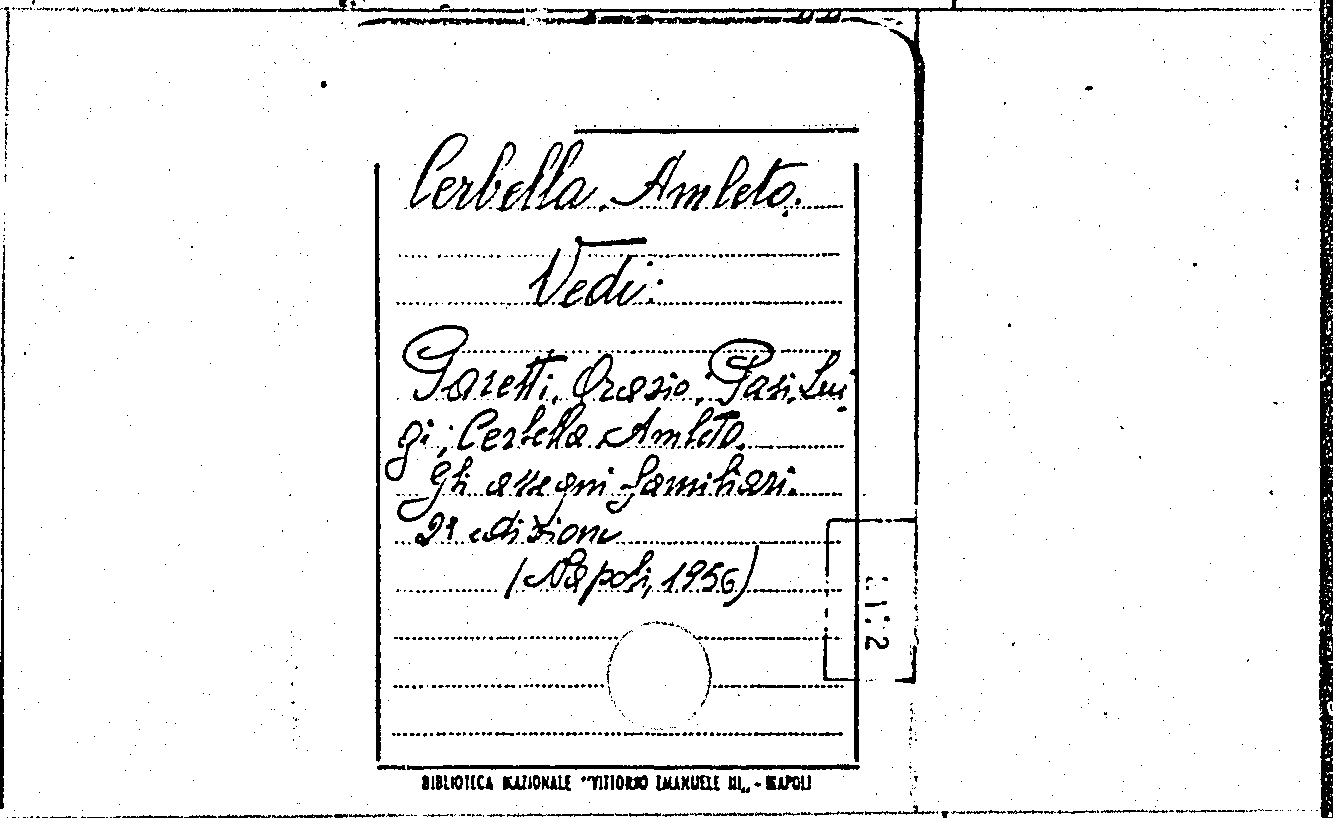 Cerbella, Amleto.
Vedi:
Paretti, Orazio; Pasi, Lui
gi; Cerbella Amleto.
Gli assegni familiari.
2ª edizione
(Napoli, 1956)
BIBLIOTECA NAZIONALE "VITTORIO EMANUELE III„ - NAPOLI